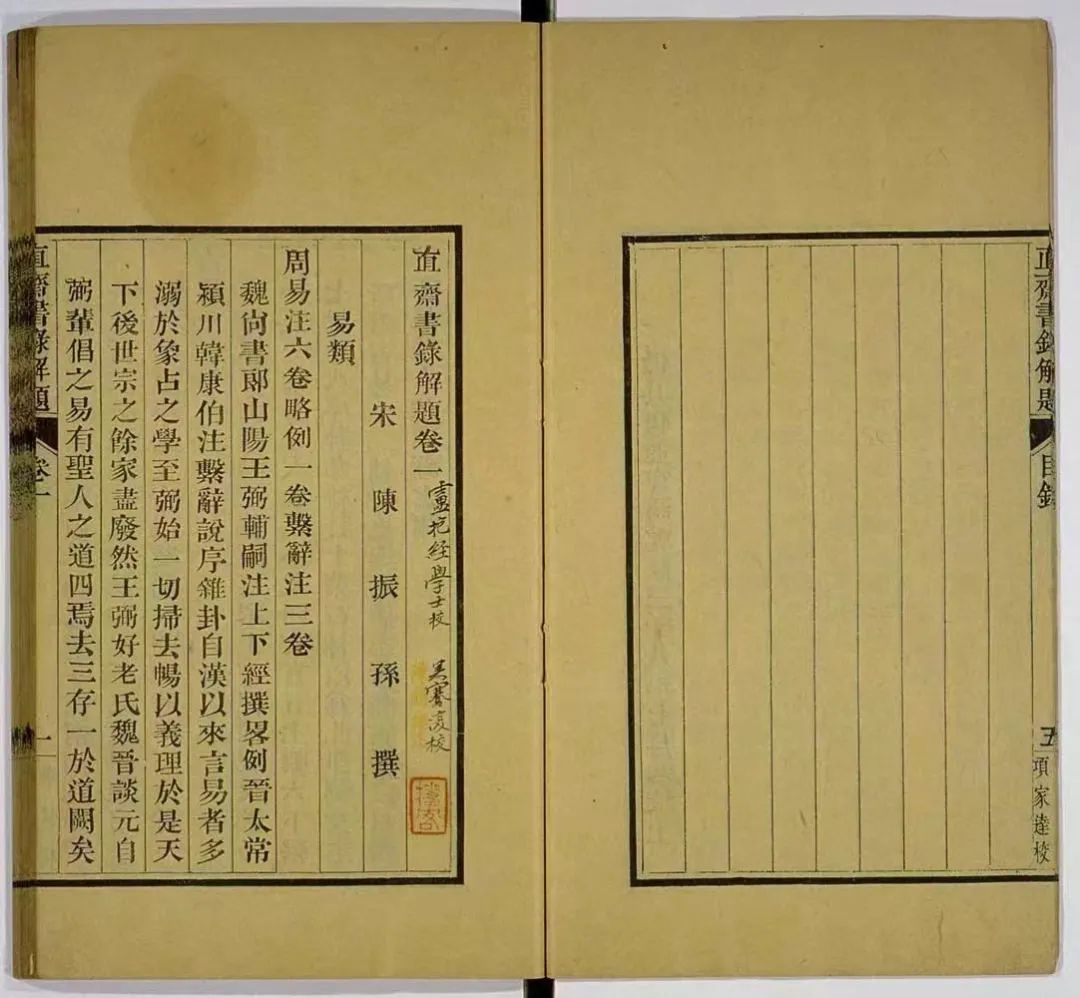 直齋書錄解題
目錄
五
項家達校
直齋書錄解題卷一
盧抱經學士校
吳騫覆校
宋 陳 振 孫 撰
易類
周易注六卷略例一卷繫辭注三卷
魏尙書郞山陽王弼輔嗣注上下經撰畧例晉太常
潁川韓康伯注繫辭說序雜卦自漢以來言易者多
溺於象占之學至弼始一切掃去暢以義理於是天
下後世宗之餘家盡廢然王弼好老氏魏晉談元自
弼輩倡之易有聖人之道四焉去三存一於道闕矣
直齋書錄解題
卷一
一